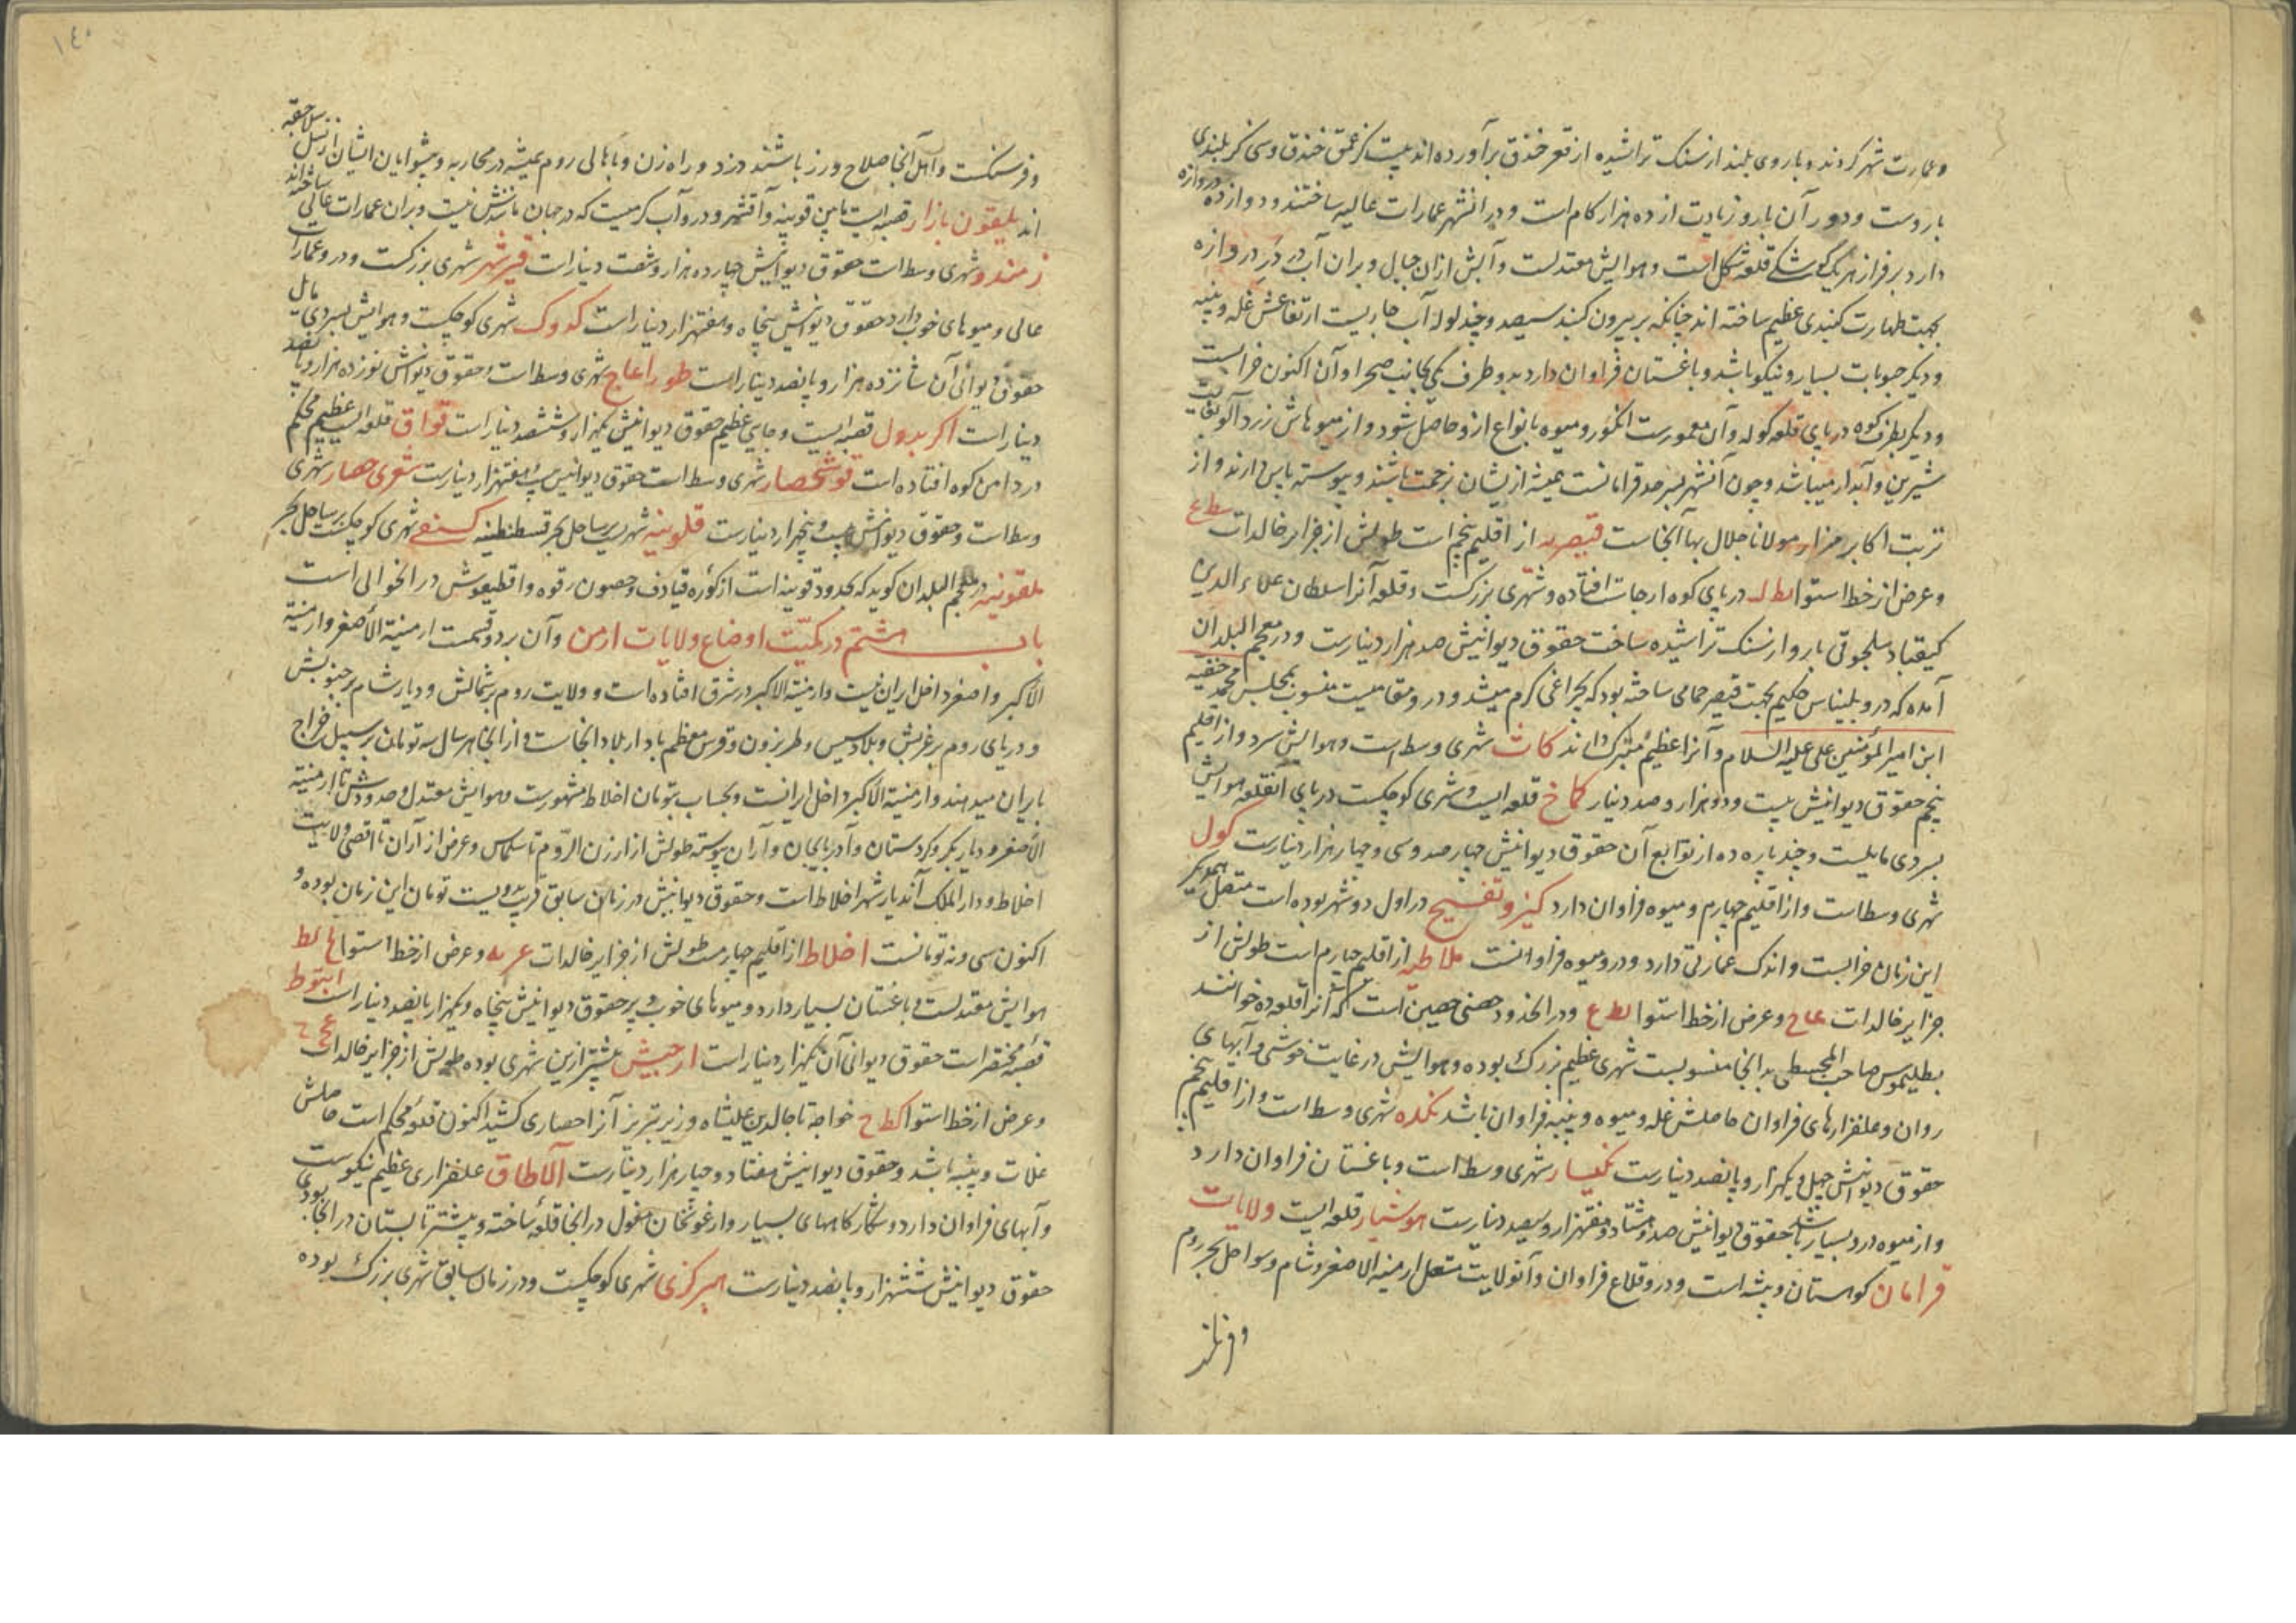 و عمارت شهر کردند و باروی بلند از سنک تراشیده از قعر خندق برآورده اند بیست کز عمق خندق و سی کز بلندی
باروست و دور آن بارو زیادت از ده هزار کام است و در انشهر عمارات عالیه ساختند و دوازده دروازه
دارد بر فراز هر یک کوشکی قلعه شکل است و هوایش معتدلست و آبش از ان جبال و بران آب در در دروازه
بجهت طهارت کنبدی عظیم ساخته اند چنانکه بر بیرون کنبد سیصد و چند لوله آب جاریست ارتفاعش غله و پنبه
و دیکر حبوبات بسیار و نیکو باشد و باغستان فراوان دارد بدو طرف یکی بجانب صحرا و آن اکنون خرابست
و دیکر بطرف کوه در پای قلعه کوله و آن معمورست انکور و میوه بانواع ازو حاصل شود و از میوهاش زردآلو بغایت
شیرین و آبدار میباشد و چون آنشهر بسرحد قرامانست همیشه ازیشان بزحمت باشند و پیوسته پاس دارند و از
تربت اکابر مزار مولانا جلال بها آنجاست قیصریه از اقلیم پنجم است طولش از جزایر خالدات
و عرض از خط استوا لط ل در پای کوه ارجات افتاده و شهری بزرکست و قلعه آنرا سلطان علاء الدین
کیقباد سلجوقی بارو از سنک تراشیده ساخت حقوق دیوانیش صد هزار دینارست و در معجم البلدان
آمده که درو بلیناس حکیم بجهت قیصر حمامی ساخته بود که بچراغی کرم میشد و درو مقامیست منسوب بمجلس محمد حنفیه
ابن امیر المؤمنین علی علیه السلام و آنرا عظیم متبرک دانند کات شهری وسط است و هوایش سرد و از اقلیم
پنجم حقوق دیوانیش بیست و دو هزار و صد دینار کماخ قلعه ایست و شهری کوچکست در پای آنقلعه هوایش
بسردی مایلست و چند پاره ده از توابع آن حقوق دیوانیش چهارصد و سی و چهار هزار دینارست کول
شهری وسطاست و از اقلیم چهارم و میوه فراوان دارد کیز و تفسیح در اول دو شهر بوده است متصل بهمدیکر
این زمان خرابست و اندک عمارتی دارد و درو میوه فراوانست ملاطیه از اقلیم چهارم است طولش از
جزایر خالدات عاح و عرض از خط استوا لط ع و در انحدود حصنی حصین است که آنرا قلعوده خوانند
بطلیموس صاحب المجسطی بدانجا منسوبست شهری عظیم بزرک بوده و هوایش در غایت خوشی و آبهای
روان و علفزارهای فراوان حاصلش غله و میوه و پنبه فراوان باشد نکده شهری وسط است و از اقلیم پنجم
حقوق دیوانیش چهل و یکهزار و پانصد دینارست نکیسار شهری وسط است و باغستان فراوان دارد
و از میوه درو بسیار باشد حقوق دیوانیش صد و هشتاد و هفتهزار و سیصد دینارست هوشیار قلعه ایست ولایات
قرامان کوهستان و بیشه است و درو قلاع فراوان و آنولایت متصل ارمنیه الاصغر و شام و سواحل بحر روم
و فرنکست و اهل آنجا صلاح ورز باشند دزد و راه زن و با اهالی روم همیشه در محاربه و پیشوایان ایشان از نسل سلاجقه
اند یلیقون بازار قصبه ایست مابین قونیه و آقشهر و درو آب کرمیست که در جهان مانندش نیست و بران عمارات عالی ساخته اند
زمندو شهری وسط است حقوق دیوانیش چهارده هزار و شصت دینار است قیرشهر شهری بزرکست و درو عمارات
عالی و میوهای خوب دارد حقوق دیوانیش پنجاه و هفتهزار دینار است کدوک شهری کوچکست و هوایش بسردی مایل
حقوق دیوانی آن شانزده هزار و پانصد دینار است طوراغاج شهری وسط است و حقوق دیوانش نوزده هزار و پانصد
دینار است اکربدول قصبه ایست و جایی عظیم حقوق دیوانیش یکهزار و ششصد دینار است قواق قلعه ایست عظیم محکم
در دامن کوه افتاده است قوشحصار شهری وسط است حقوق دیوانیش بیست و هفتهزار دینارست شهری حصار شهری
وسط است و حقوق دیوانش بیست و پنجهزار دینارست قلونیه شهر بر ساحل بحر قسطنطنیه کسنی شهری کوچکست بر ساحل بحر
ملقونیه در معجم البلدان کوید که بحدود قونیه است از کوره قیادف و حصون رقوه و اقطیعوش در انحوالی است
باب هشتم در کمیت اوضاع ولایات ارمن و آن بر دو قسمت ارمنیة الاصغر و ارمنیة
الاکبر و اصغر داخل ایران نیست و ارمنیة الاکبر در شرق افتاده است و ولایت روم بر شمالش و دیار شام بر جنوبش
و دریای روم بر غربش و بلاد سیس و طربزون و قبرس معظم بلاد اربلاد آنجاست و از انجا هر سال سه تومان بر سبیل خراج
بایران میدهند و ارمنیة الاکبر داخل ایرانست و بحساب بتومان اخلاط مشهورست و هوایش معتدل و حدودش تا ارمنیة
الاصغر و دیار بکر و کردستان و آذربایجان و آران پیوسته طولش از ارزن الروم تا سلماس و عرض از آران تا اقصی ولایت
اخلاط و دار الملک آندیار شهر اخلاط است و حقوق دیوانیش در زمان سابق قریب دویست تومان این زمان بوده و
اکنون سی و نه تومانست اخلاط از اقلیم چهارمست طولش از جزایر خالدات عر یه و عرض از خط استوا لح لط
هوایش معتدلست و باغستان بسیار دارد و میوهای خوب و پر حقوق دیوانیش پنجاه و یکهزار پانصد دینار است ابتوط
قصبه مختصر است حقوق دیوانی آن یکهزار دینار است ارجیش پیشتر ازین شهری بوده طولش از جزایر خالدات
و عرض از خط استوا کط ح خواجه تاج الدین علیشاه وزیر تبریز آنرا حصاری کشید اکنون قلعه محکم است حاصلش
غلات و پنبه باشد و حقوق دیوانیش هفتاد و چهار هزار دینارست آلاطاق علفزاری عظیم نیکوست
و آبهای فراوان دارد و شکارکاههای بسیار و ارغونخان مغول در انجا قلعه ساخته و بیشتر تابستان در انجا بودی
حقوق دیوانیش ششهزار و پانصد دینارست ابرکزی شهری کوچکست و در زمان سابق شهری بزرک بوده